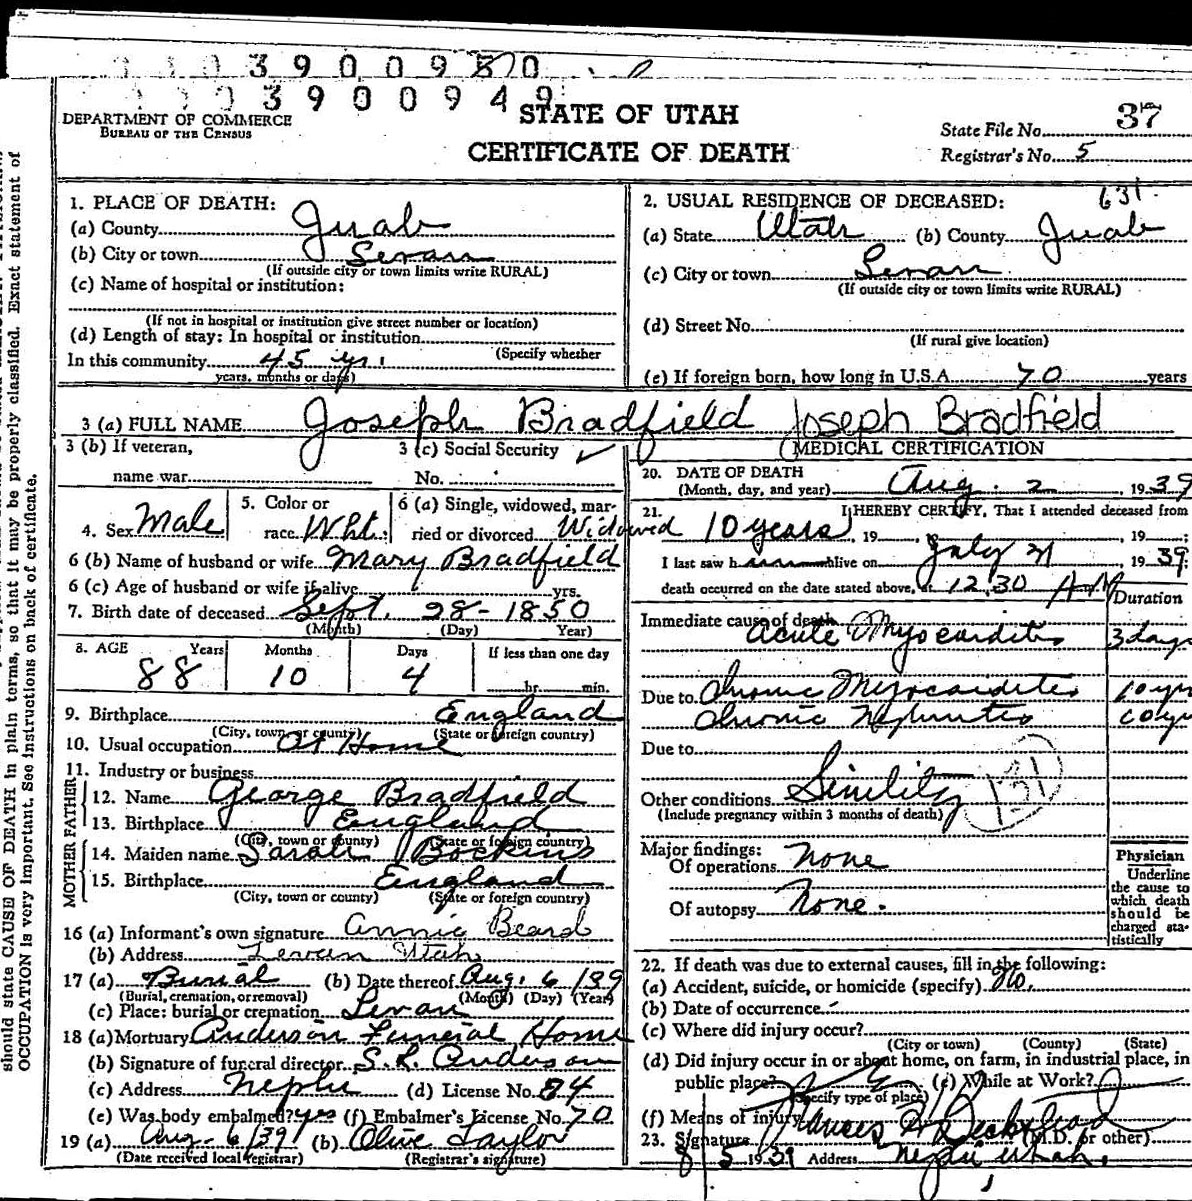 3900970
3900949
DEPARTMENT OF COMMERCE
BUREAU OF THE CENSUS
STATE OF UTAH
CERTIFICATE OF DEATH
37
State File No.
Registrar's No. 5
1. PLACE OF DEATH:
(a) County Juab
(b) City or town Levan
(If outside city or town limits write RURAL)
(c) Name of hospital or institution:
(If not in hospital or institution give street number or location)
(d) Length of stay: In hospital or institution
(Specify whether
In this community 45 yrs.
years, months or days)
2. USUAL RESIDENCE OF DECEASED: 631
(a) State Utah (b) County Juab
(c) City or town Levan
(If outside city or town limits write RURAL)
(d) Street No.
(If rural give location)
(e) If foreign born, how long in U.S.A. 70 years
3 (a) FULL NAME Joseph Bradfield Joseph Bradfield
3 (b) If veteran,
name war
3 (c) Social Security
No.
4. Sex Male
5. Color or
race Wht.
6 (a) Single, widowed, mar-
ried or divorced Widowed
6 (b) Name of husband or wife Mary Bradfield
6 (c) Age of husband or wife if alive yrs.
7. Birth date of deceased Sept. 28-1850
(Month) (Day) Year)
8. AGE Years Months Days If less than one day
88 10 4 hr. min.
9. Birthplace England
(City, town or county) (State or foreign country)
10. Usual occupation At Home
11. Industry or business
FATHER
12. Name George Bradfield
13. Birthplace England
(City, town or county) (State or foreign country)
MOTHER
14. Maiden name Sarah Bockins
15. Birthplace England
(City, town or county) (State or foreign country)
16 (a) Informant's own signature Annie Beard
(b) Address Levan Utah
17 (a) Burial (b) Date thereof Aug. 6/39
(Burial, cremation, or removal) (Month) (Day) (Year)
(c) Place: burial or cremation Levan
18 (a) Mortuary Anderson Funeral Home
(b) Signature of funeral director S. R. Anderson
(c) Address Nephi (d) License No. 84
(e) Was body embalmed? yes (f) Embalmer's License No. 70
19 (a) Aug-6/39 (b) Olive Taylor
(Date received local registrar) (Registrar's signature)
MEDICAL CERTIFICATION
20. DATE OF DEATH
(Month, day, and year) Aug. 2 1939
21. I HEREBY CERTIFY, That I attended deceased from
10 years, 19 , 19 ;
I last saw h alive on July 21 1939;
death occurred on the date stated above, at 12.30 AM
Duration
Immediate cause of death
Acute Myocarditis 3 days
Due to Chronic Myocarditis 10 yrs
Chronic Nephritis 10 yrs
Due to
Other conditions Senility 131
(Include pregnancy within 3 months of death)
Major findings:
Of operations None
Of autopsy None.
Physician
Underline
the cause to
which death
should be
charged sta-
tistically
22. If death was due to external causes, fill in the following:
(a) Accident, suicide, or homicide (specify) No.
(b) Date of occurrence -
(c) Where did injury occur?
(City or town) (County) (State)
(d) Did injury occur in or about home, on farm, in industrial place, in
public place? (e) While at Work?
(Specify type of place)
(f) Means of injury
23. Signature (M.D. or other)
8/5 1939 Address Nephi Utah.
should state CAUSE OF DEATH in plain terms, so that it may be properly classified. Exact statement of
OCCUPATION is very important. See instructions on back of certificate.